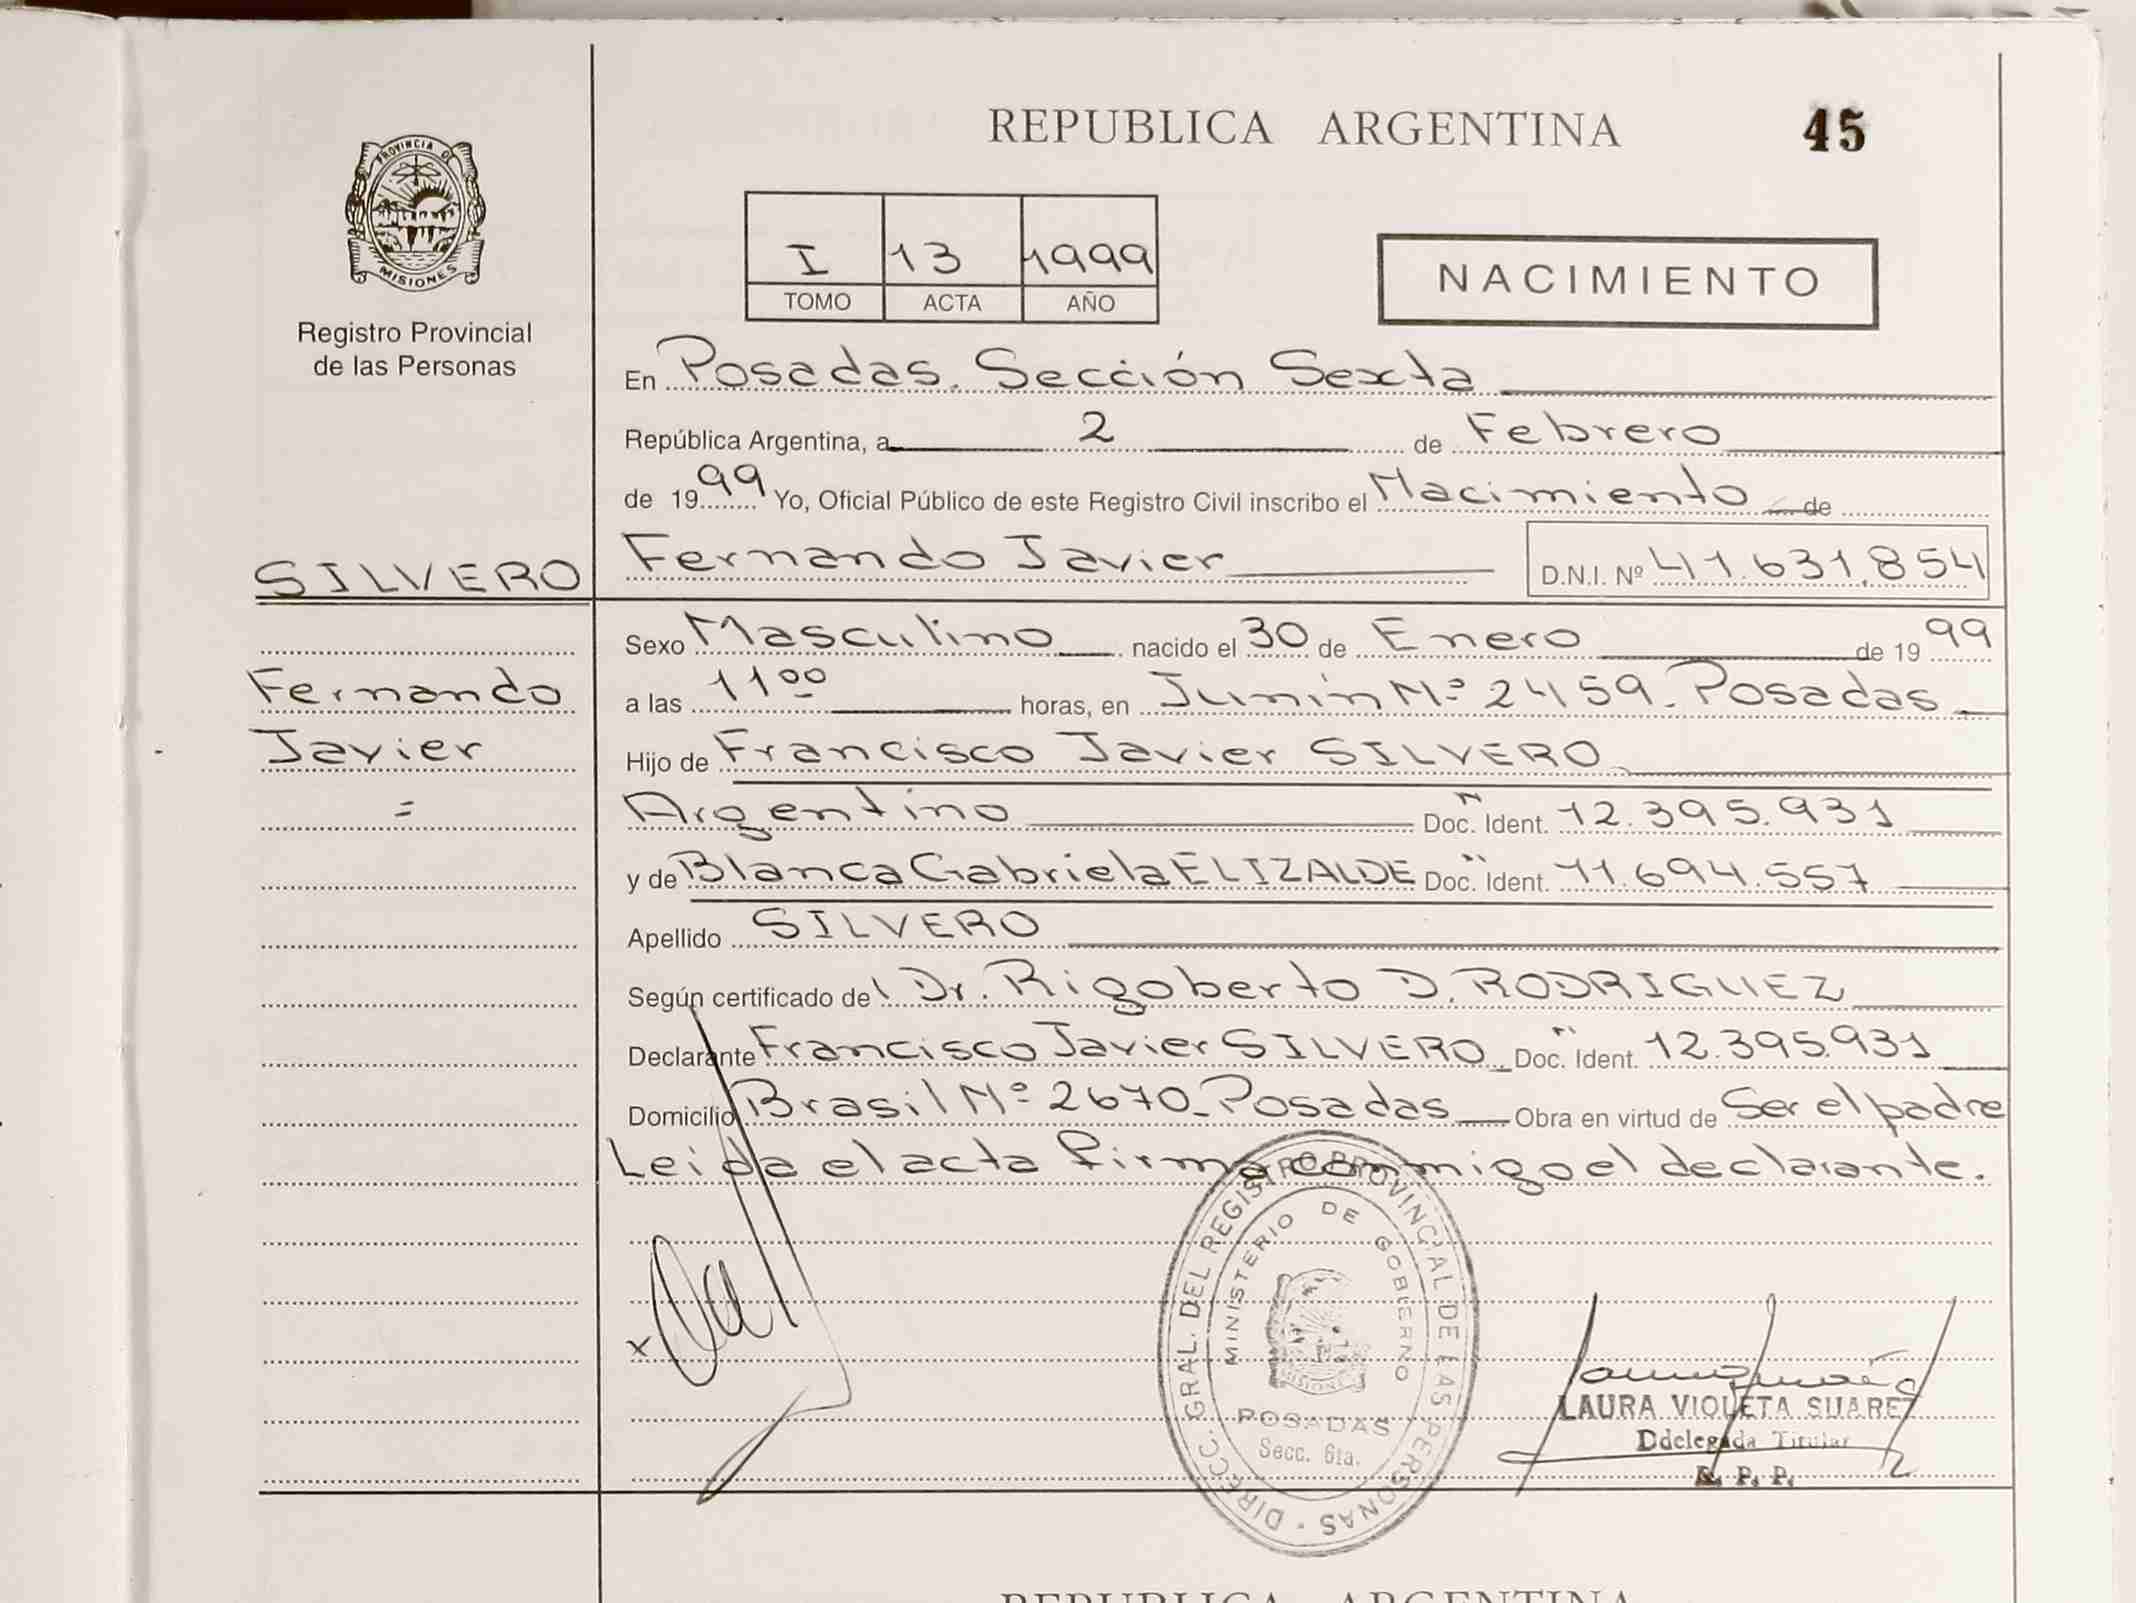 REPUBLICA ARGENTINA 45
PROVINCIA DE
MISIONES
Registro Provincial
de las Personas
I 13 1999
TOMO ACTA AÑO
NACIMIENTO
En Posadas. Sección Sexta
República Argentina, a 2 de Febrero
de 1999 Yo, Oficial Público de este Registro Civil inscribo el Nacimiento de
SILVERO
Fernando Javier D.N.I. Nº 41.631.854
Sexo Masculino nacido el 30 de Enero de 1999
Fernando
a las 11 00 horas, en Junín Nº 2459. Posadas
Javier
Hijo de Francisco Javier SILVERO
=
Argentino Doc. Ident. 12.395.931
y de Blanca Gabriela ELIZALDE Doc. Ident. 11.694.557
Apellido SILVERO
Según certificado de Dr. Rigoberto D. RODRIGUEZ
Declarante Francisco Javier SILVERO Doc. Ident. 12.395.931
Domicilio Brasil Nº 2670 Posadas Obra en virtud de Ser el padre
Leida el acta firma conmigo el declarante.
DIRECC. GRAL. DEL REGISTRO PROVINCIAL DE LAS PERSONAS
MINISTERIO DE GOBIERNO
MISIONES
POSADAS
Secc. 6ta.
x
LAURA VIOLETA SUAREZ
Ddelegada Titular
R. P. P.
REPUBLICA ARGENTINA